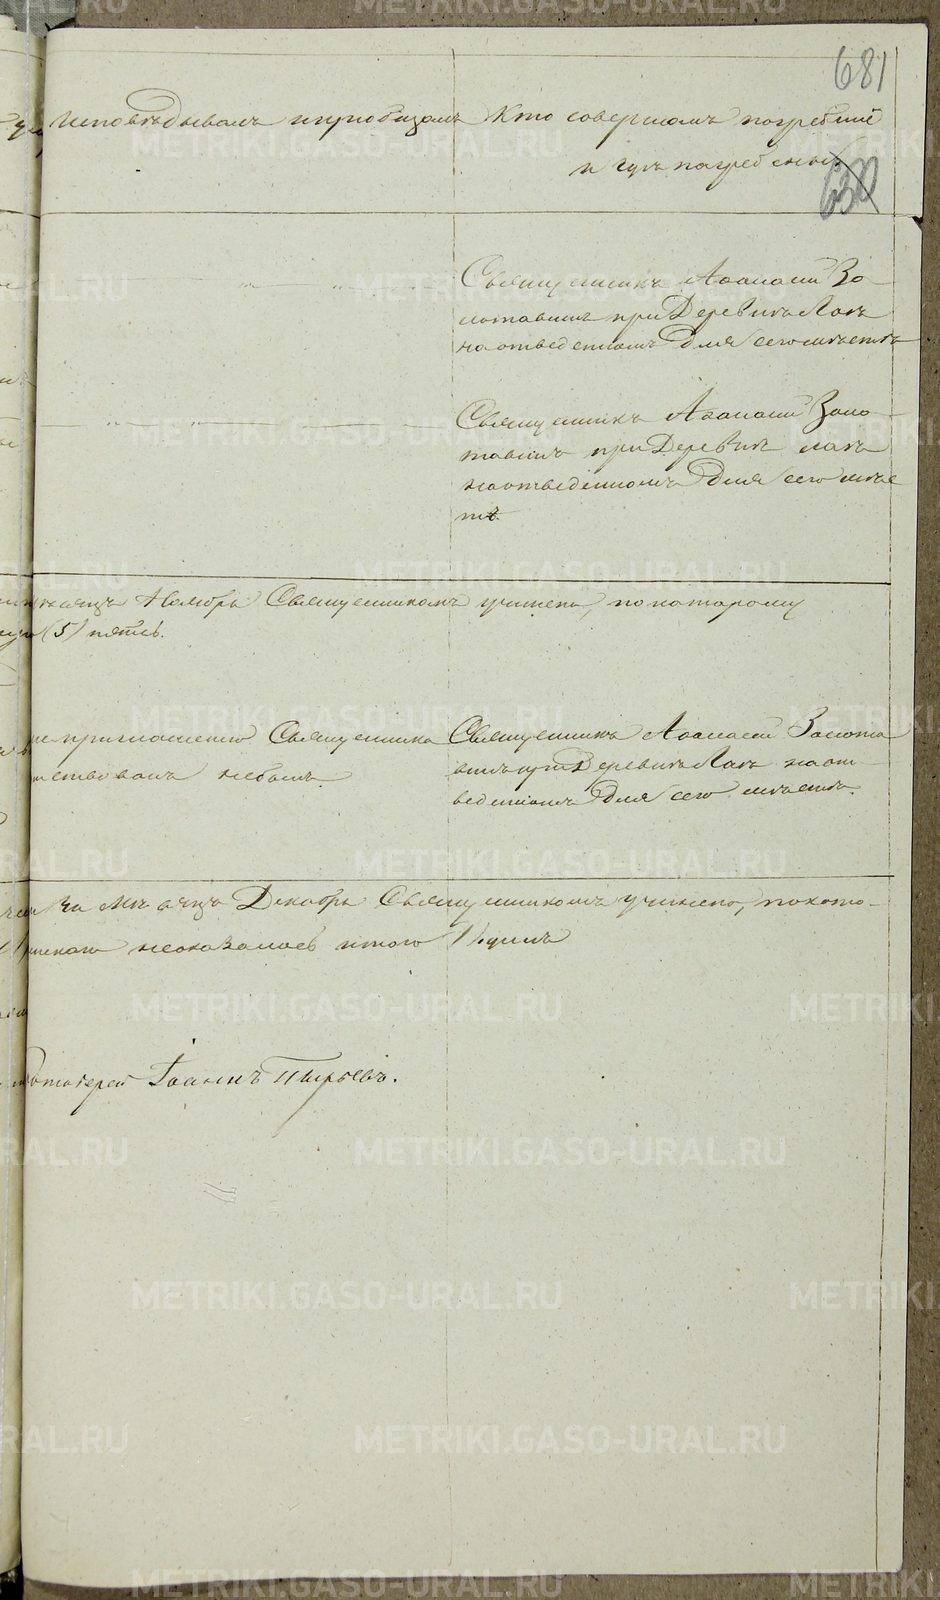 681
исповѣдывалъ и приобщалъ
Кто совершалъ погребенiе
и гдѣ погребены
630
Священникъ Аѳанасiй Зо
лотавинъ при Деревнѣ Лаѣ
на отведенномъ для сего мѣстѣ
Священникъ Аѳанасiй Золо
тавинъ при Деревнѣ Лаѣ
на отведенномъ для сего мѣс
тѣ.
мѣсяцъ Ноябрь Священникомъ учинена, по которому
(5) пять.
по приглашенiю Священника
небылъ
Священникъ Аѳанасiй Золота
винъ при Деревнѣ Лаѣ на от
веденномъ для сего мѣстѣ.
за мѣсяцъ Декабрь Священникомъ учинено, по кото-
неоказалось итого
Iоаннъ Пырьевъ.
METRIKI.GASO-URAL.RU